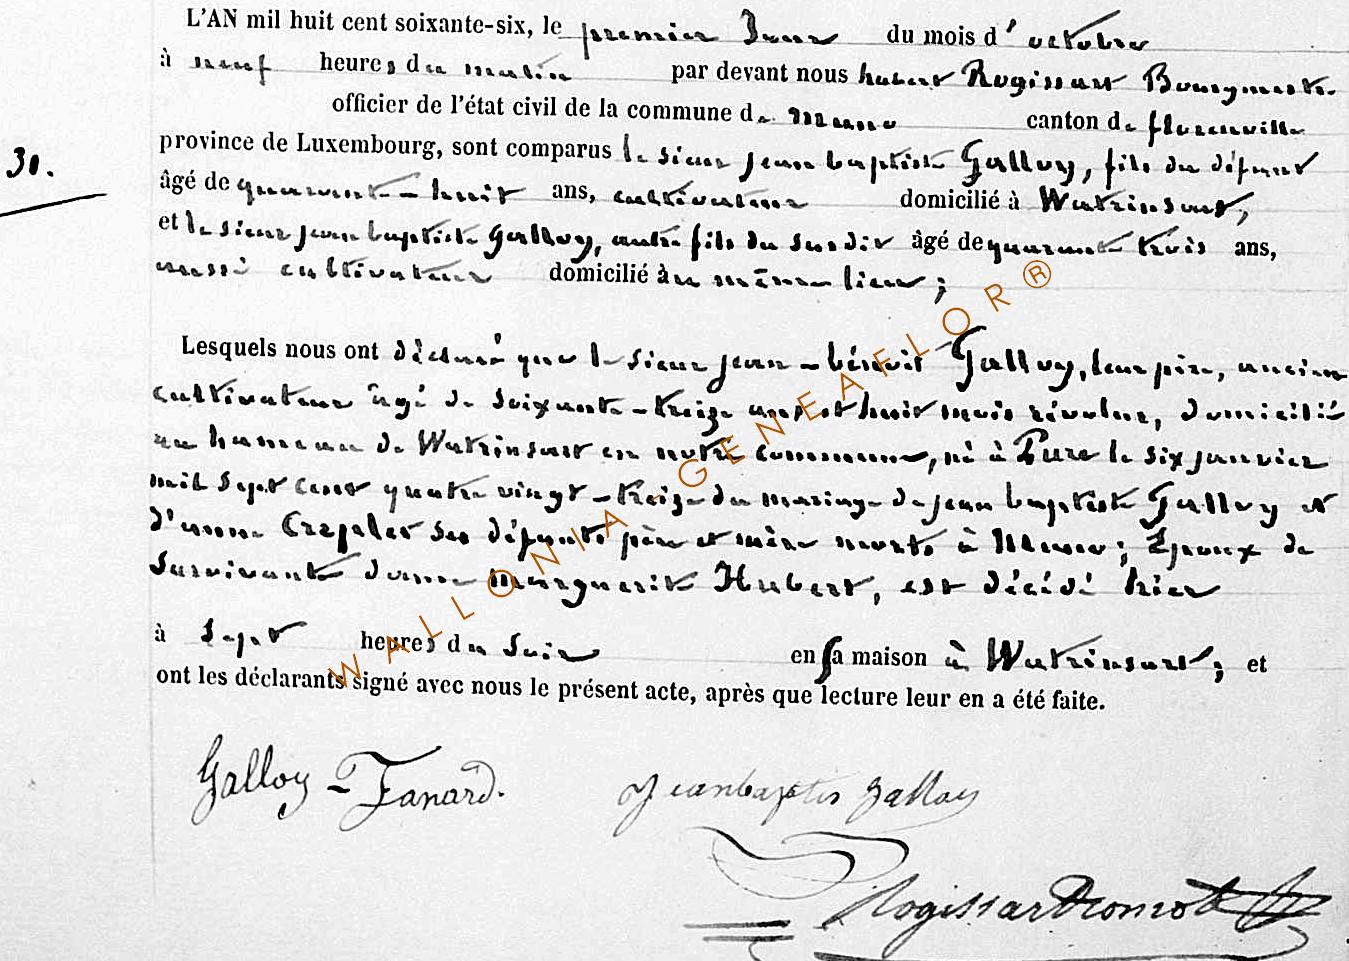 L'AN mil huit cent soixante-six, le premier Jour du mois d'octobre
à neuf heures du matin par devant nous hubert Rogissart Bourgmestre
officier de l'état civil de la commune de muno canton de florenville
30.
province de Luxembourg, sont comparus le sieur jean baptiste Galloy, fils du défunt
âgé de quarante-huit ans, cultivateur domicilié à Watrinsart,
et le sieur jean baptiste Galloy, autre fils du susdit âgé de quarante trois ans,
aussi cultivateur domicilié au même lieu;
Lesquels nous ont déclaré que le sieur jean-bénoit Galloy, leur père, ancien
cultivateur âgé de soixante-treize ans et huit mois révolus, domicilié
au hameau de Watrinsart en notre commune, né à Pure le six janvier
mil sept cent quatre vingt-treize du mariage de jean baptiste Galloy et
d'anne ses défunts père et mère morts à Muno; Epoux de
Survivante dame Marguerite Hubert, est décédé hier
à sept heures du soir en sa maison à Watrinsart; et
ont les déclarants signé avec nous le présent acte, après que lecture leur en a été faite.
Galloy - Fanard. Jean baptis galloy
Rogissart
WALLONIA-GENEAFLOR®